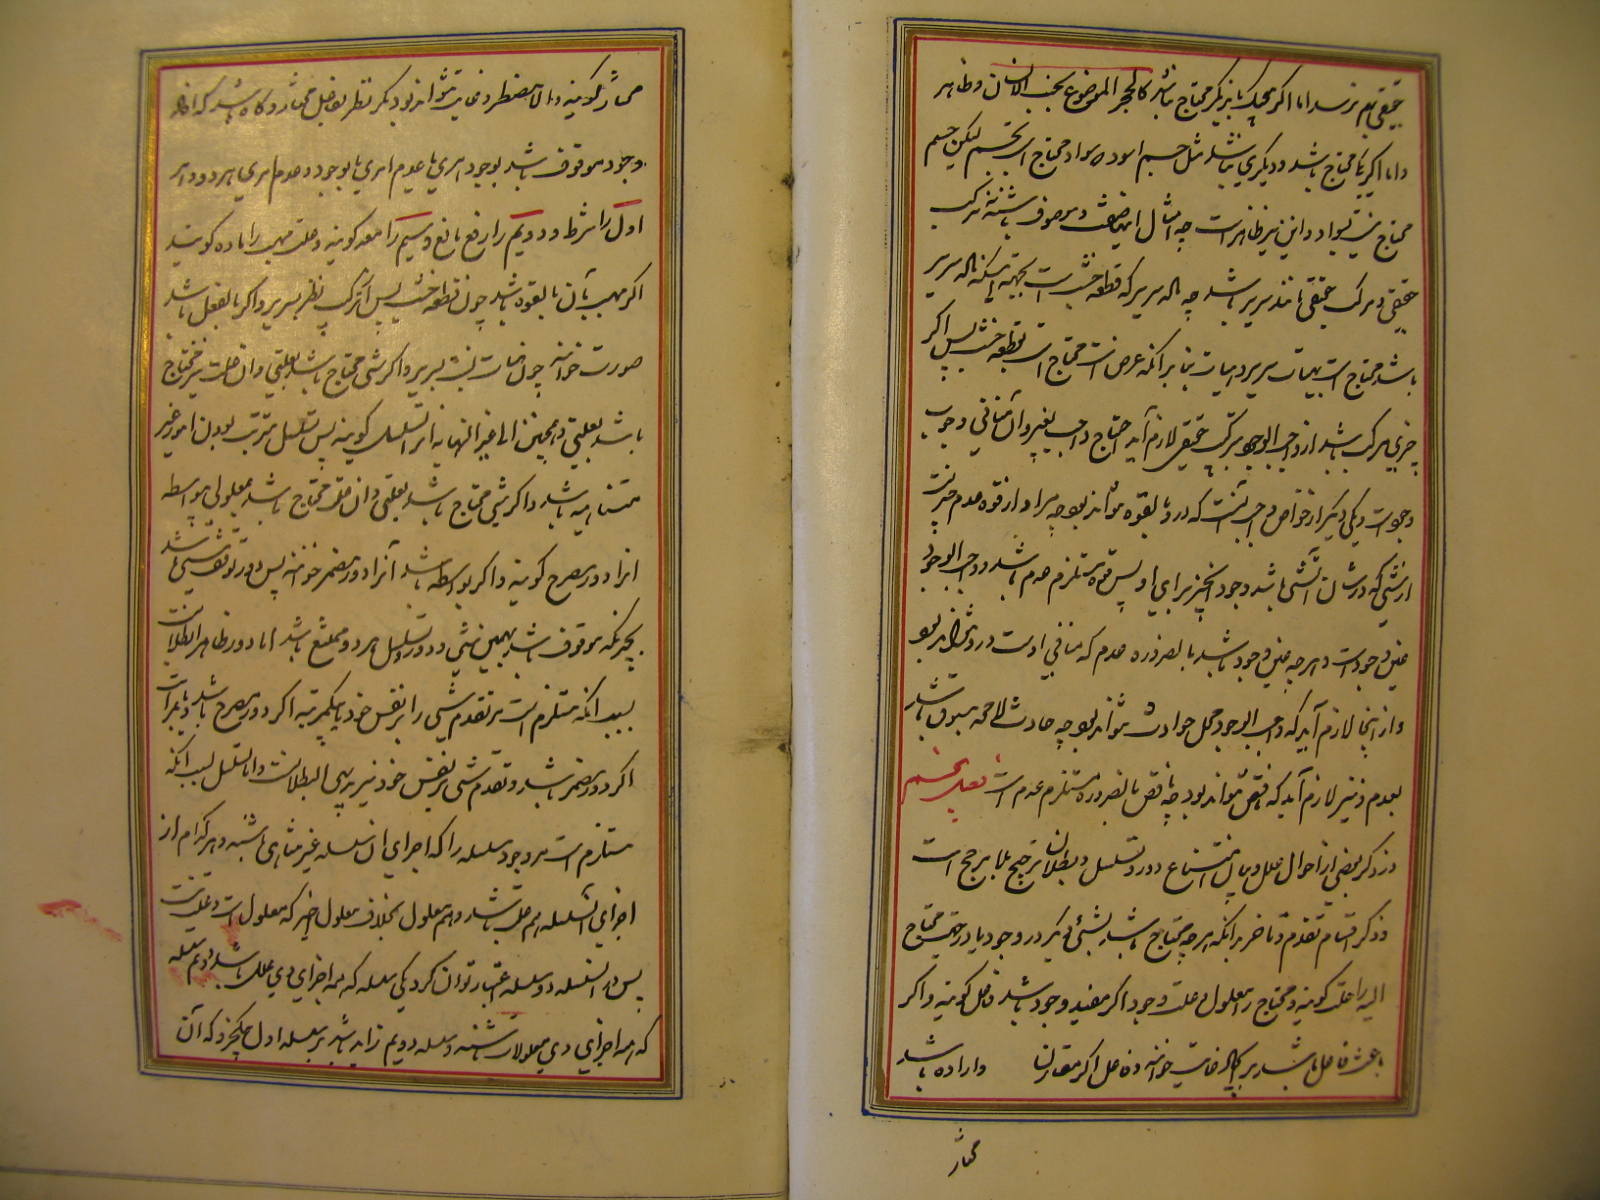 حقیقی بهم نرسد اما اگر هیچیک بدیگر محتاج نباشد کالحجر الموضوع بجنب الانسان و ظاهر
و اما اگر یکی محتاج باشد و دیگری نباشد مثل جسم اسود سواد محتاج است بجسم لیکن جسم
محتاج نیست بسواد و این نیز ظاهر است چه امثال صفت و موصوف باشند نه مرکب
حقیقی و مرکب حقیقی مانند سریر باشد چه ماده سریر که قطعه خشب است بجهة اینکه ماده سریر
باشد محتاج است بهیات سریر و هیات بنا بر آنکه عرض است محتاج است بقطعه خشب پس اگر
چیزی مرکب باشد از واجب الوجود بترکیب حقیقی لازم آید احتیاج واجب بغیر و آن منافی وجوب
وجود است و یکی دیگر از خواص واجب آنست که در وی بالقوه نتواند بود چه مراد از قوه عدم چیزیست
از شیء که در شان آن شیء باشد وجود آن چیز برای او پس قوه مستلزم عدم باشد و واجب الوجود
عین وجود است و هر چه عین وجود باشد بالضروره عدم که منافی اوست در وی نتواند بود
و از اینجا لازم آید که واجب الوجود محل حوادث نتواند بود چه حادث لا محه مسبوق باشد
بعدم و نیز لازم آید که ناقص نتواند بود چه نقص بالضروره مستلزم عدم است فصل پنجم
در ذکر بعضی از احوال علل و بیان امتناع دور و تسلسل و بطلان ترجیح بلا مرجح است
و ذکر اقسام تقدم و تاخر بدانکه هر چه محتاج باشد بشیء دیگر در وجود یا در محتاج
الیه را علت گویند و محتاج را معلول و علت وجود اگر مفید وجود باشد فاعل گویند و اگر
باعث فاعل باشد بر غایت خوانند و فاعل اگر مقارن واراده باشد
مختار
مختار گویند والا مضطر و غایت نتواند بود مگر نظر بفاعل مختار و گاه باشد که
وجود موقوف باشد بوجود امری یا عدم امری یا بوجود و عدم امری یا هر دو
اول را شرط و دویم را رفع مانع و سیم را معد گویند و علت مهیت را ماده گویند
اگر مهیت بآن بالقوه باشد چون قطعه خشب پس از ترکیب نظر بسریر و اگر بالفعل باشد
صورت خوانند چون هیات نسبت بسریر و اگر شیء محتاج باشد بعلتی و آن علت نیز محتاج
باشد بعلتی و همچنین الی غیر النهایه انرا تسلسل گویند پس تسلسل مترتب بودن امور غیر
متناهیه باشد و اگر شیء محتاج باشد بعلتی و ان علت محتاج باشد بمعلول بیواسطه
انرا دور مصرح گویند و اگر بواسطه باشد آنرا دور مضمر خوانند پس دور توقف شیء باشد
بچیزیکه موقوف باشد بهمین شیء و دور و تسلسل هر دو ممتنع باشد اما دور ظاهر البطلانست
بسبب انکه مستلزم است مر تقدم شیء را بر نفس خود بیکمرتبه اگر دور مصرح باشد و بمراتب
اگر دور مضمر باشد و تقدم شیء بر نفس خود نیز بدیهی البطلانست و اما تسلسل بسبب انکه
مستلزم است مر وجود سلسله را که اجزای ان سلسله غیر متناهی باشند و هر کدام از
اجزای آن سلسله هم علت باشد و هم معلول بخلاف معلول اخیر که معلول است و علت نیست
پس در ان سلسله دو سلسله اعتبار توان کرد یکی سلسله که همه اجزای وی علل باشند و دویم سلسله
که همه اجزای وی معلولات باشند و سلسله دویم زاید باشد بر سلسله اول بیکجزو که آن